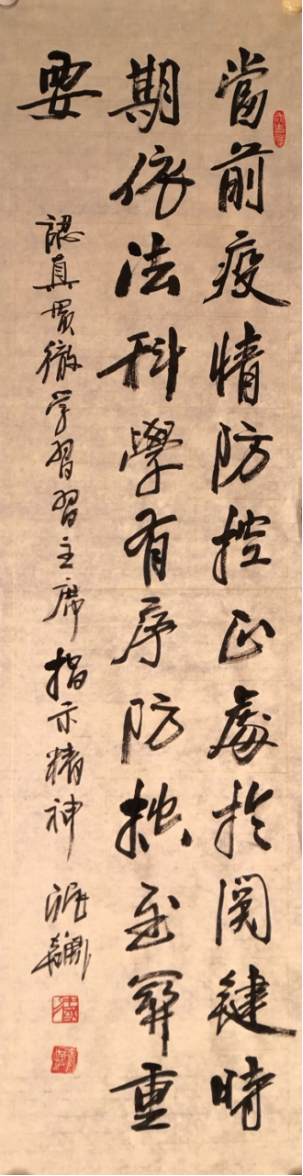 當前疫情防控正處於関鍵時
期依法科學有序防控至關重
要
認真貫徹学習習主席指示精神